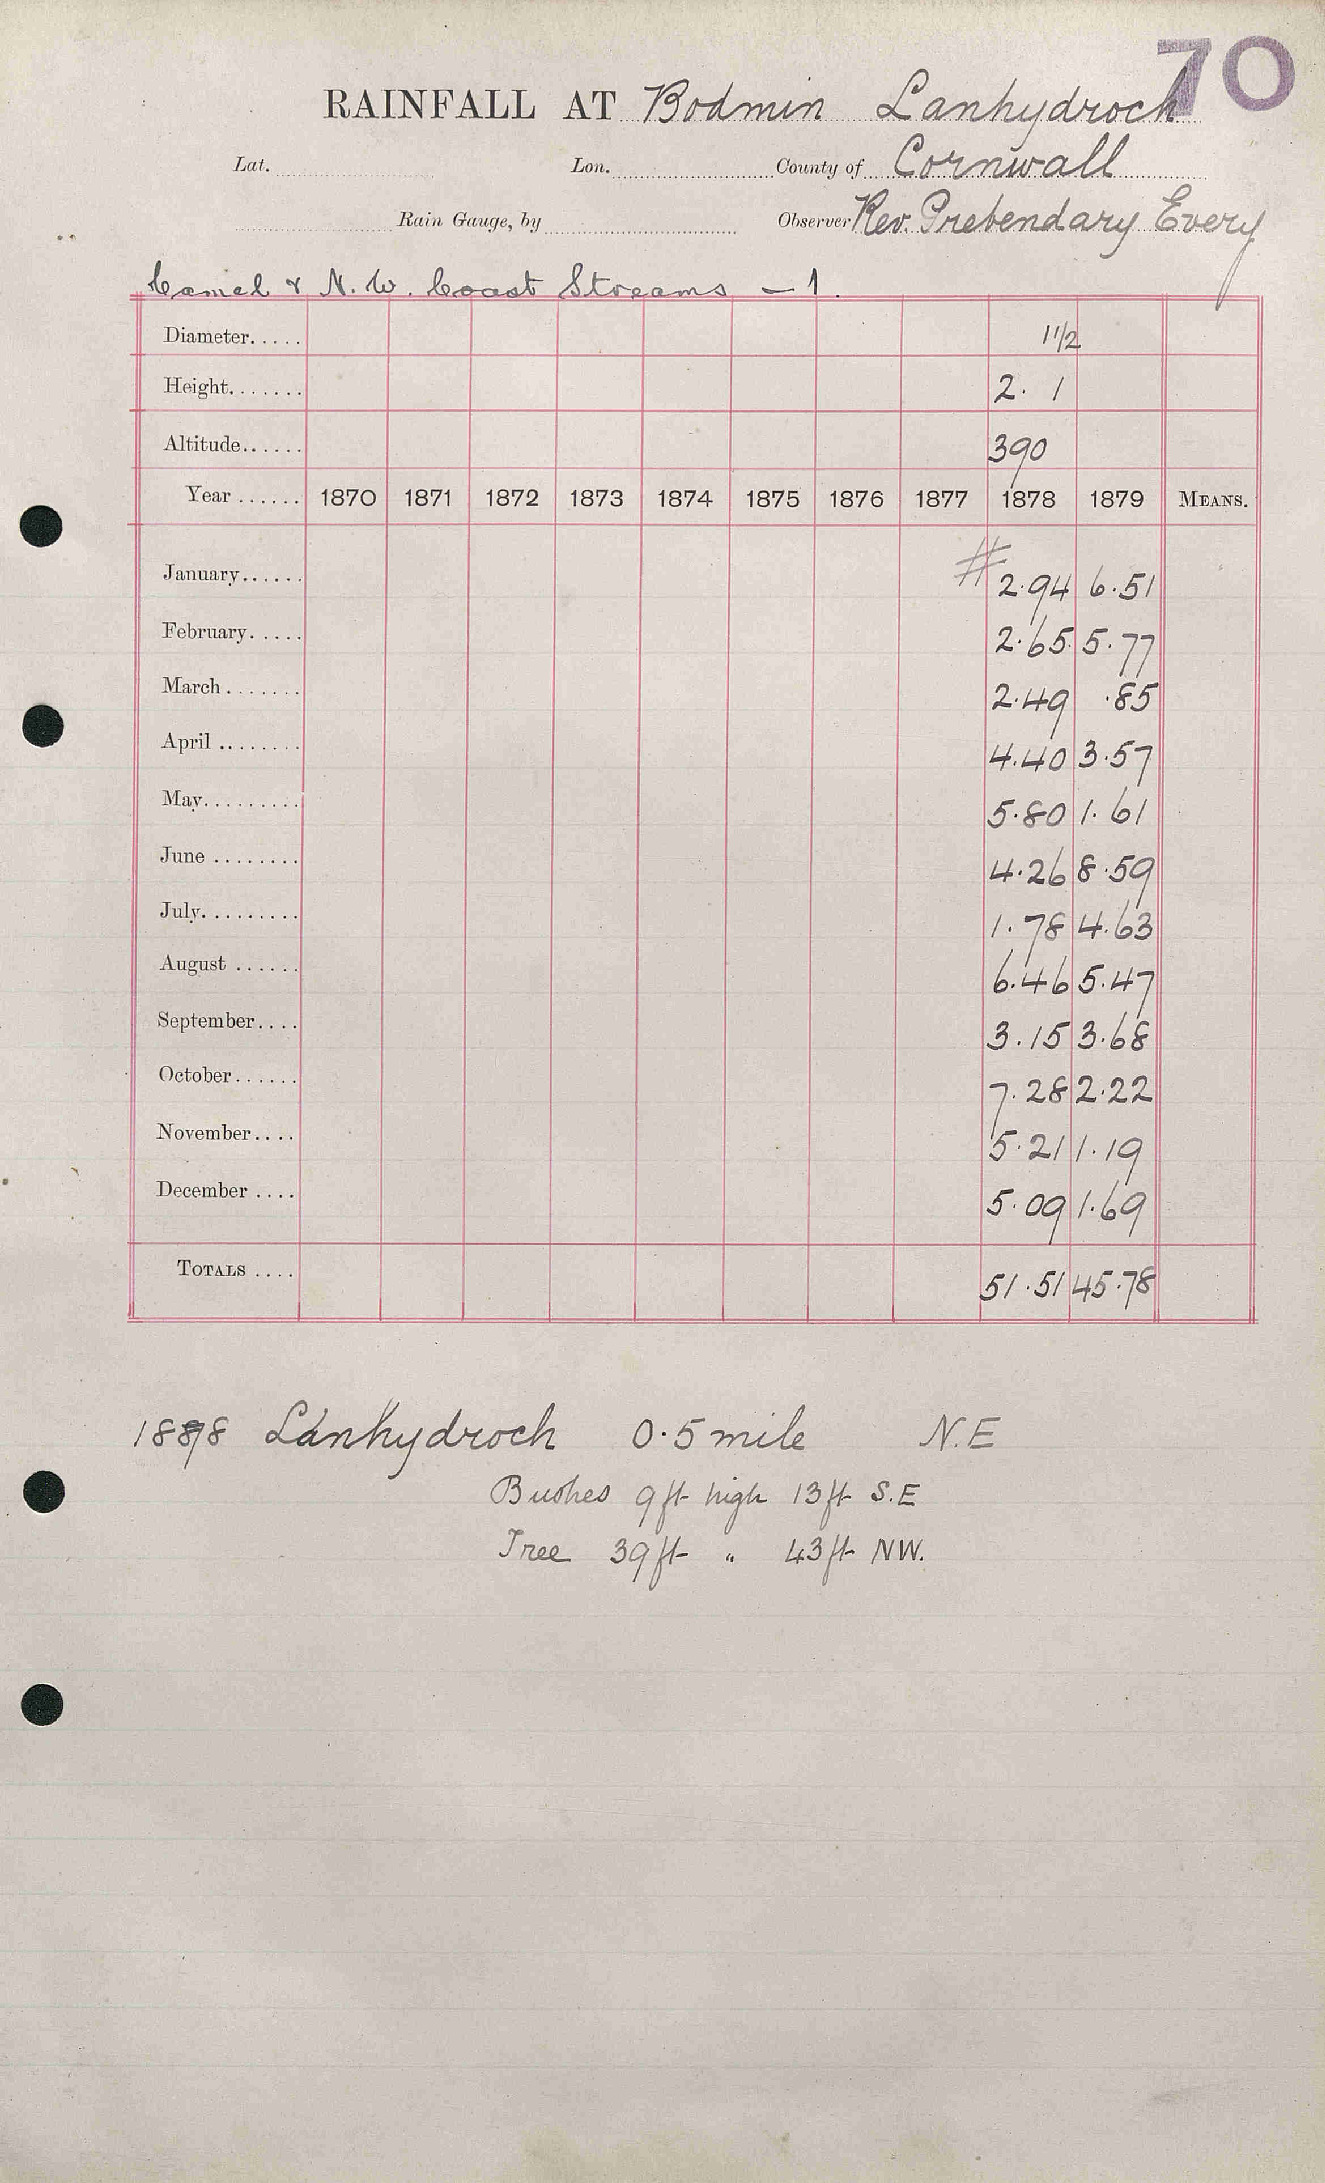 70
RAINFALL AT Bodmin Lanhydrock
Lat. Lon. County of Cornwall
Rain Gauge, by Observer Rev. Prebendary Every
Camel & N.W. Coast Streams — 1.
Diameter..... 11/2
Height....... 2. 1
Altitude...... 390
Year ...... 1870 1871 1872 1873 1874 1875 1876 1877 1878 1879 MEANS.
January...... # 2.94 6.51
February..... 2.65 5.77
March ....... 2.49 .85
April ........ 4.40 3.57
May......... 5.80 1.61
June ........ 4.26 8.59
July......... 1.78 4.63
August ...... 6.46 5.47
September.... 3.15 3.68
October...... 7.28 2.22
November.... 5.21 1.19
December .... 5.09 1.69
TOTALS .... 51.51 45.78
Lanhydrock 0.5 mile N.E
Bushes 9ft high 13ft S.E
Tree 39ft " 43ft NW.